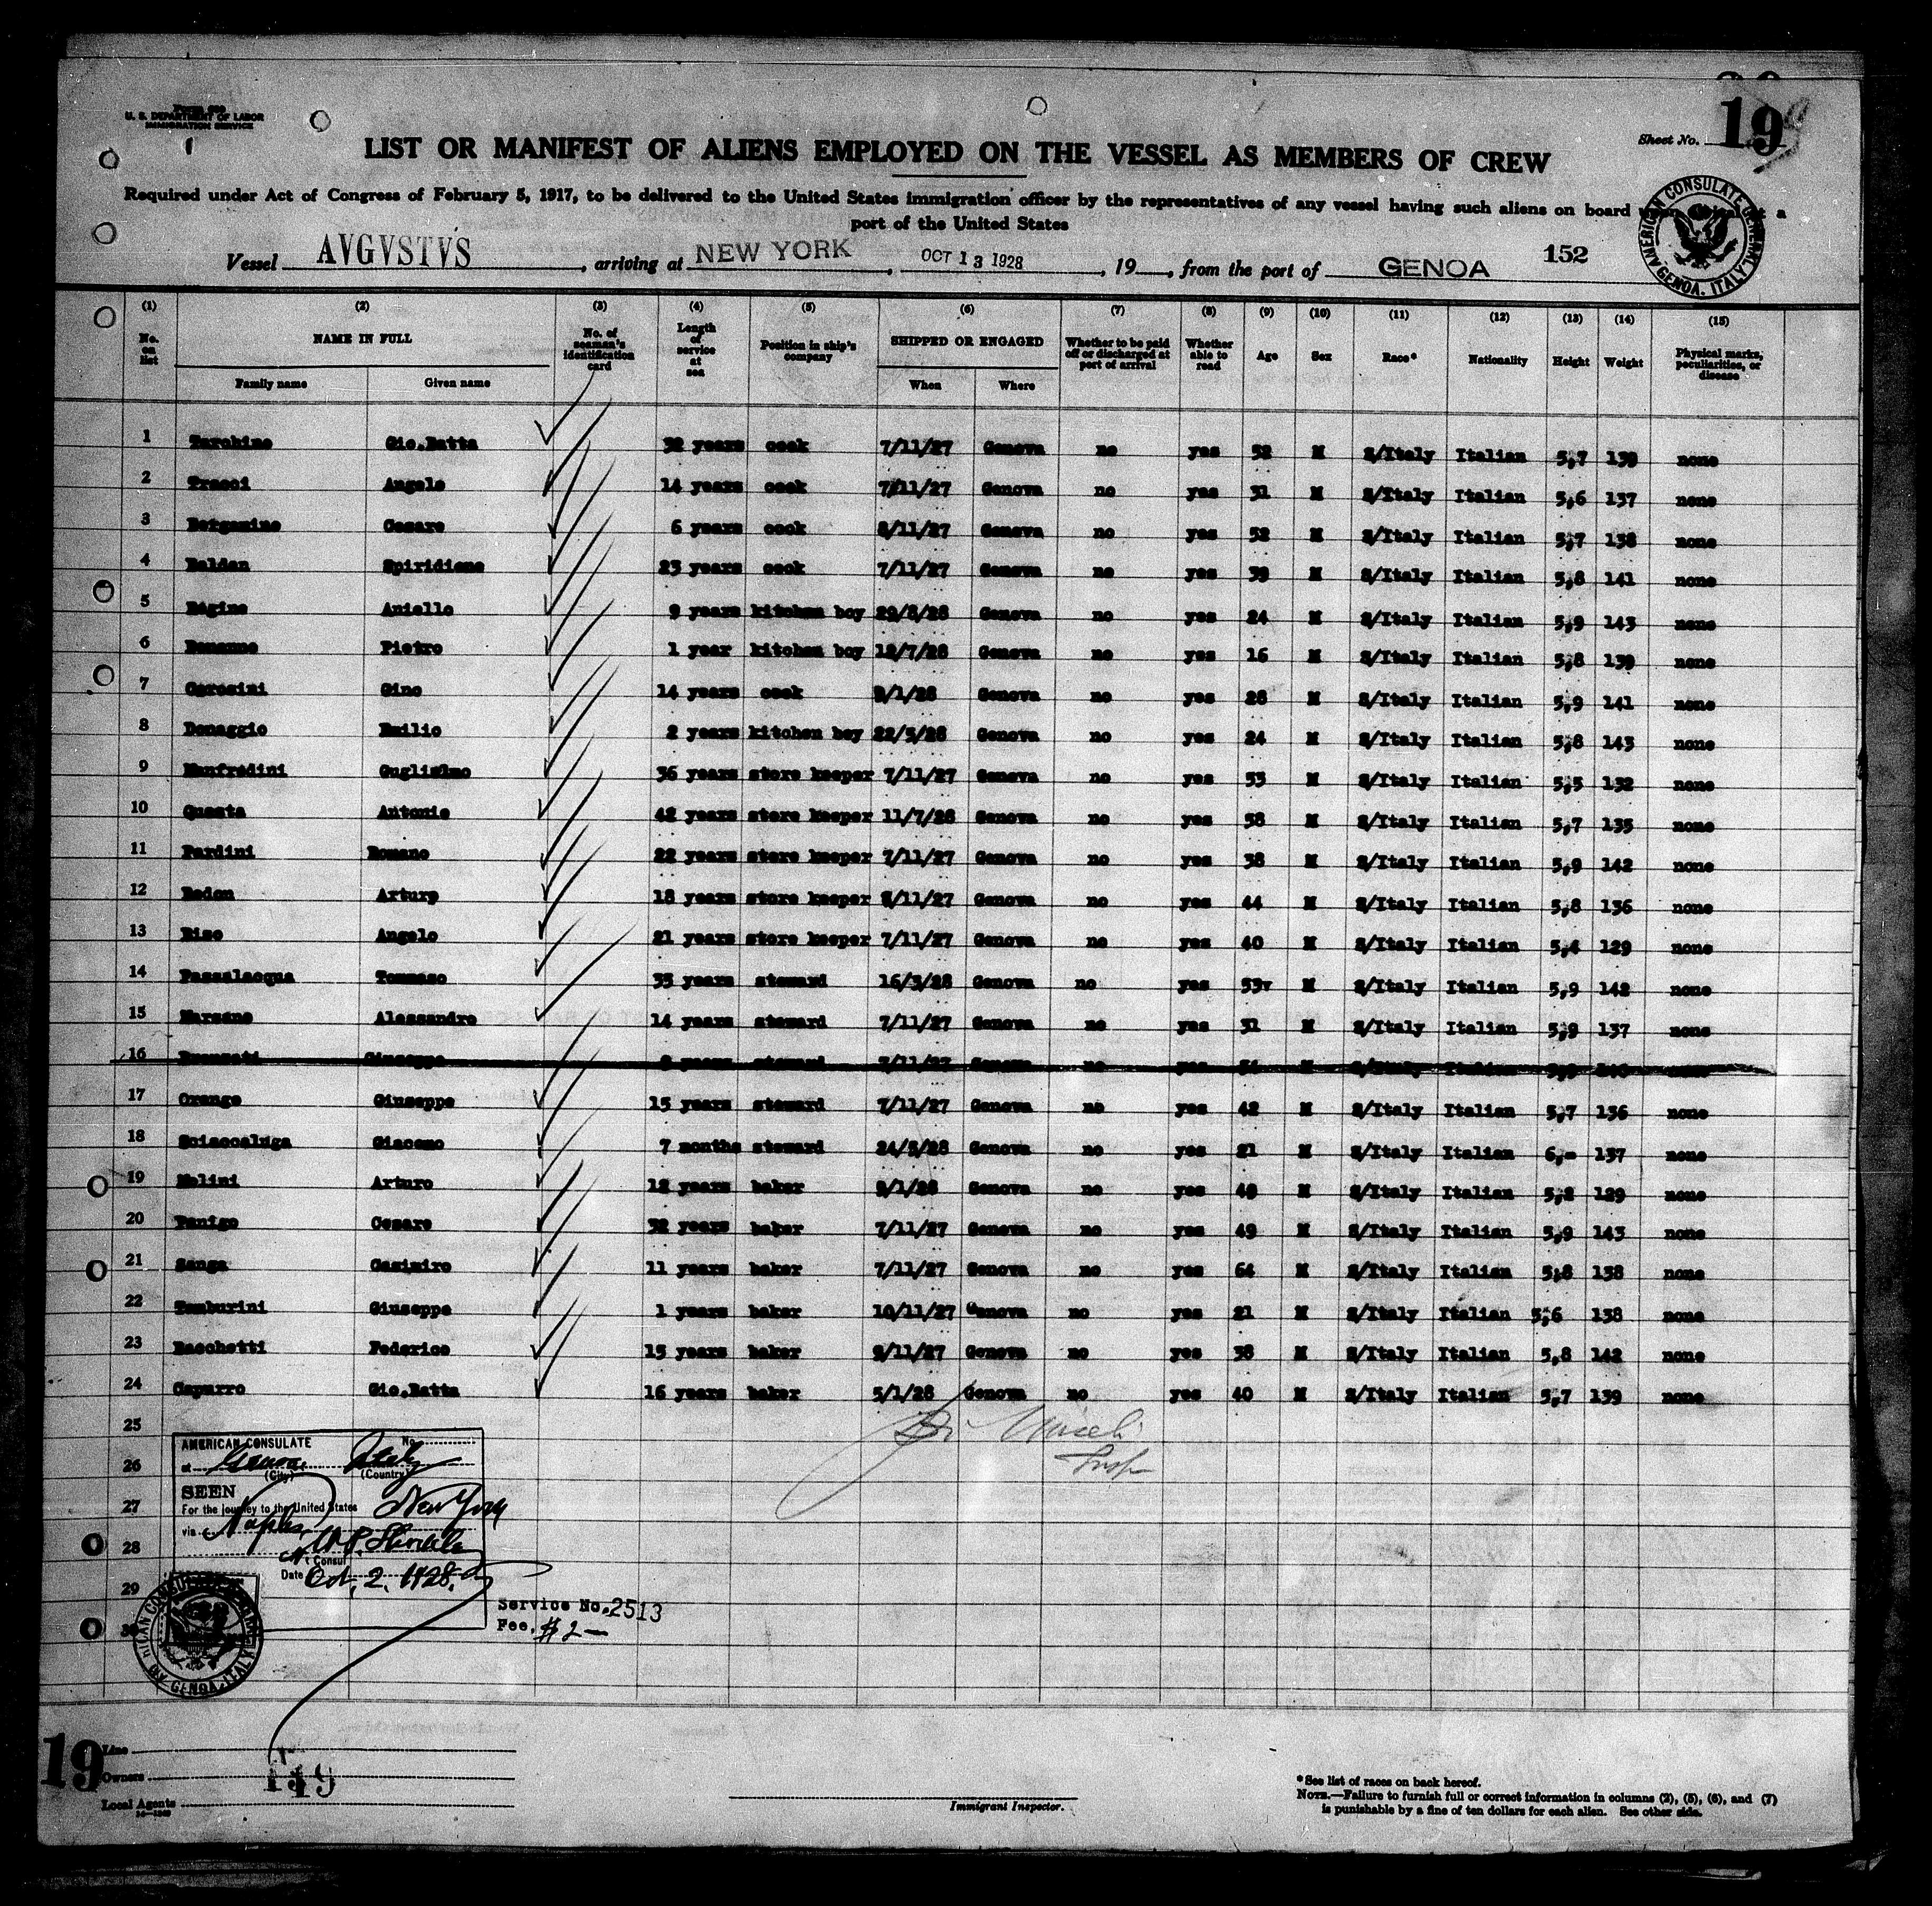 U. S. DEPARTMENT OF LABOR
IMMIGRATION SERVICE
Sheet No. 19
LIST OR MANIFEST OF ALIENS EMPLOYED ON THE VESSEL AS MEMBERS OF CREW
Required under Act of Congress of February 5, 1917, to be delivered to the United States immigration officer by the representatives of any vessel having such aliens on board a
port of the United States
Vessel AVGVSTVS, arriving at NEW YORK, OCT 13 1928, 19, from the port of GENOA 152
AMERICAN CONSULATE GENERAL GENOA, ITALY
(1) (2) (3) (4) (5) (6) (7) (8) (9) (10) (11) (12) (13) (14) (15)
No. on list NAME IN FULL Family name Given name No. of seaman's identification card Length of service at sea Position in ship's company SHIPPED OR ENGAGED When Where Whether to be paid off or discharged at port of arrival Whether able to read Age Sex Race* Nationality Height Weight Physical marks, peculiarities, or disease
1 Gio.Batta 32 years cook 7/11/27 Genova no yes 52 M S/Italy Italian 5,7 139 none
2 Angelo 14 years cook 7/11/27 Genova no yes 31 M S/Italy Italian 5,6 137 none
3 Bergamino Cesare 6 years cook 8/11/27 Genova no yes 52 M S/Italy Italian 5,7 138 none
4 Baldan Spiridione 23 years cook 7/11/27 Genova no yes 39 M S/Italy Italian 5,8 141 none
5 Regine Aniello 9 years kitchen boy 29/8/28 Genova no yes 24 M S/Italy Italian 5,9 143 none
6 Pietro 1 year kitchen boy 12/7/28 Genova no yes 16 M S/Italy Italian 5,8 139 none
7 Gino 14 years cook 9/1/28 Genova no yes 28 M S/Italy Italian 5,9 141 none
8 Donaggio Emilio 2 years kitchen boy 22/5/28 Genova no yes 24 M S/Italy Italian 5,8 143 none
9 Manfredini Guglielmo 36 years store keeper 7/11/27 Genova no yes 53 M S/Italy Italian 5,5 132 none
10 Questa Antonio 42 years store keeper 11/7/28 Genova no yes 58 M S/Italy Italian 5,7 135 none
11 Pardini Romano 22 years store keeper 7/11/27 Genova no yes 38 M S/Italy Italian 5,9 142 none
12 Arturo 18 years store keeper 8/11/27 Genova no yes 44 M S/Italy Italian 5,8 136 none
13 Angelo 21 years store keeper 7/11/27 Genova no yes 40 M S/Italy Italian 5,4 129 none
14 Passalacqua Tommaso 35 years steward 16/3/28 Genova no yes 53 M S/Italy Italian 5,9 142 none
15 Marsano Alessandro 14 years steward 7/11/27 Genova no yes 31 M S/Italy Italian 5,9 137 none
16 Giuseppe years steward 7/11/27 Genova no yes M S/Italy Italian none
17 Orengo Giuseppe 15 years steward 7/11/27 Genova no yes 42 M S/Italy Italian 5,7 136 none
18 Sciaccaluga Giacomo 7 months steward 24/5/28 Genova no yes 21 M S/Italy Italian 6,- 137 none
19 Molini Arturo 12 years baker 9/1/28 Genova no yes 48 M S/Italy Italian 5,2 129 none
20 Panigo Cesare 32 years baker 7/11/27 Genova no yes 49 M S/Italy Italian 5,9 143 none
21 Sanga Casimiro 11 years baker 7/11/27 Genova no yes 64 M S/Italy Italian 5,8 138 none
22 Tamburini Giuseppe 1 years baker 10/11/27 Genova no yes 21 M S/Italy Italian 5,6 138 none
23 Bacchetti Federico 15 years baker 9/11/27 Genova no yes 38 M S/Italy Italian 5,8 142 none
24 Caparro Gio.Batta 16 years baker 5/1/28 Genova no yes 40 M S/Italy Italian 5,7 139 none
25
26
27
28
29
30
AMERICAN CONSULATE No.
at Genoa, Italy
(City) (Country)
SEEN
For the journey to the United States New York
via Naples
Consul
Date Oct, 2, 1928.
Service No. 2513
Fee, $2—
19
Line
Owners
Local Agents
Immigrant Inspector.
*See list of races on back hereof.
NOTE.—Failure to furnish full or correct information in columns (2), (5), (6), and (7)
is punishable by a fine of ten dollars for each alien. See other side.